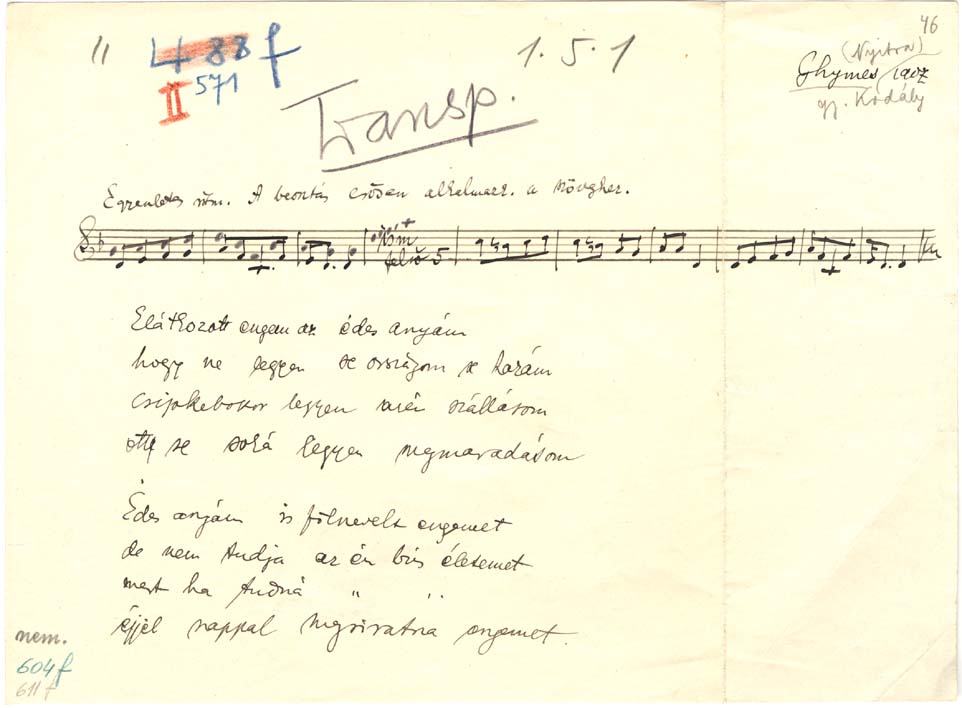 46
11 488 f 1. 5. 1 (Nyitra)
II 571 Ghymes 1907
gy. Kodály
Transp.
Egyenletes ritm. A beosztás csősen alkalmazk. a szöveghez.
felső 5
Elátkozott engem az édes anyám
hogy ne legyen se országom se hazám
csipkebokor legyen szállásom
ott se soká legyen megmaradásom
Édes anyám is fölnevelt engemet
de nem tudja az én bús életemet
mert ha tudná " "
éjjel nappal megsiratna engemet.
nem.
604 f
611 f